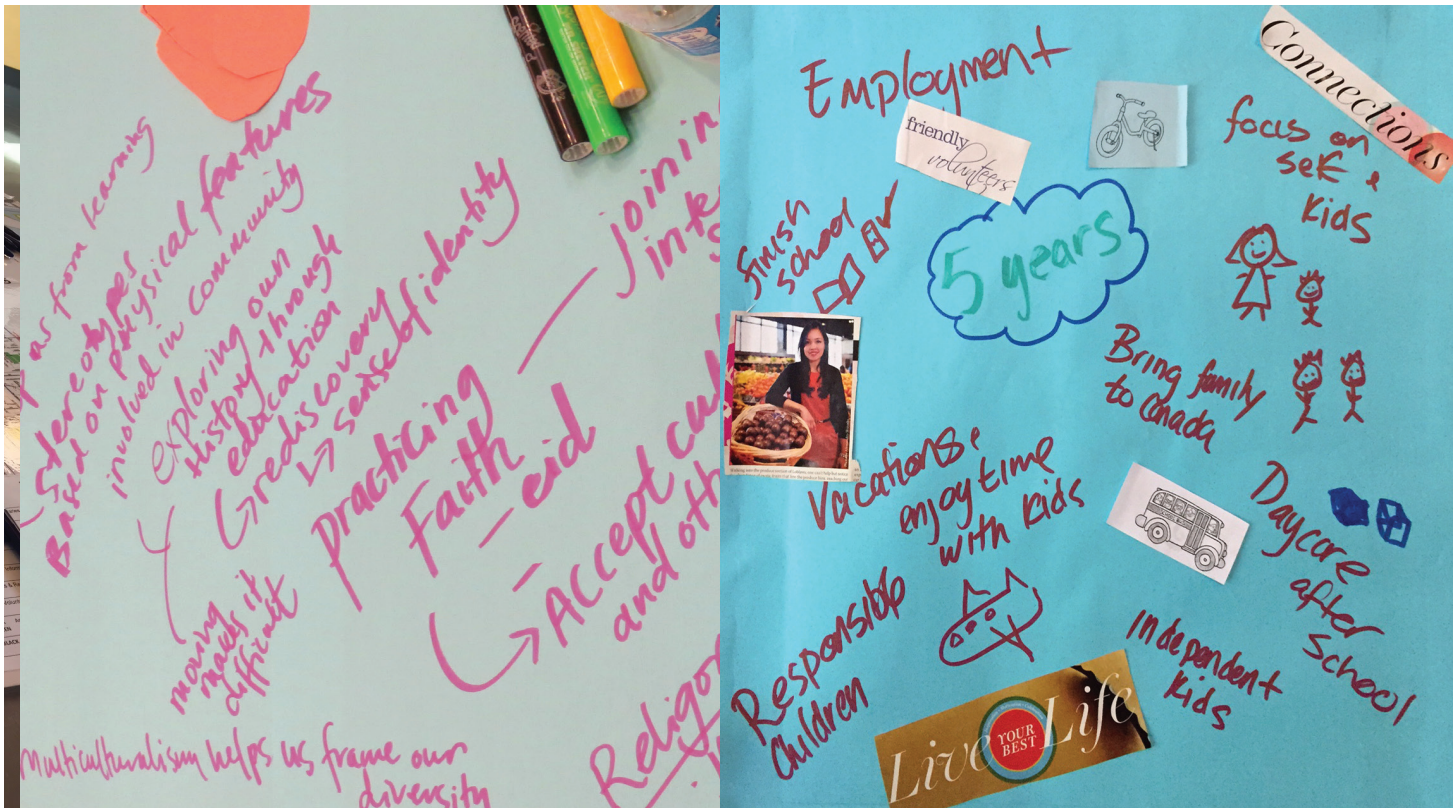 as from learning
stereotypes
Based on physical features
involved in community
exploring own
History through
education
rediscovery
sense of identity
practicing
Faith
- eid
-
joining
Accept
and
moving
makes it
difficult
Multiculturalism helps us frame our
diversity
Employment
friendly
volunteers
Connections
focus on
self &
Kids
finish
school
5 years
Bring family
to Canada
Vacations &
enjoy time
with kids
Daycare
after
school
Responsible
Children
Independent
Kids
Live YOUR BEST Life